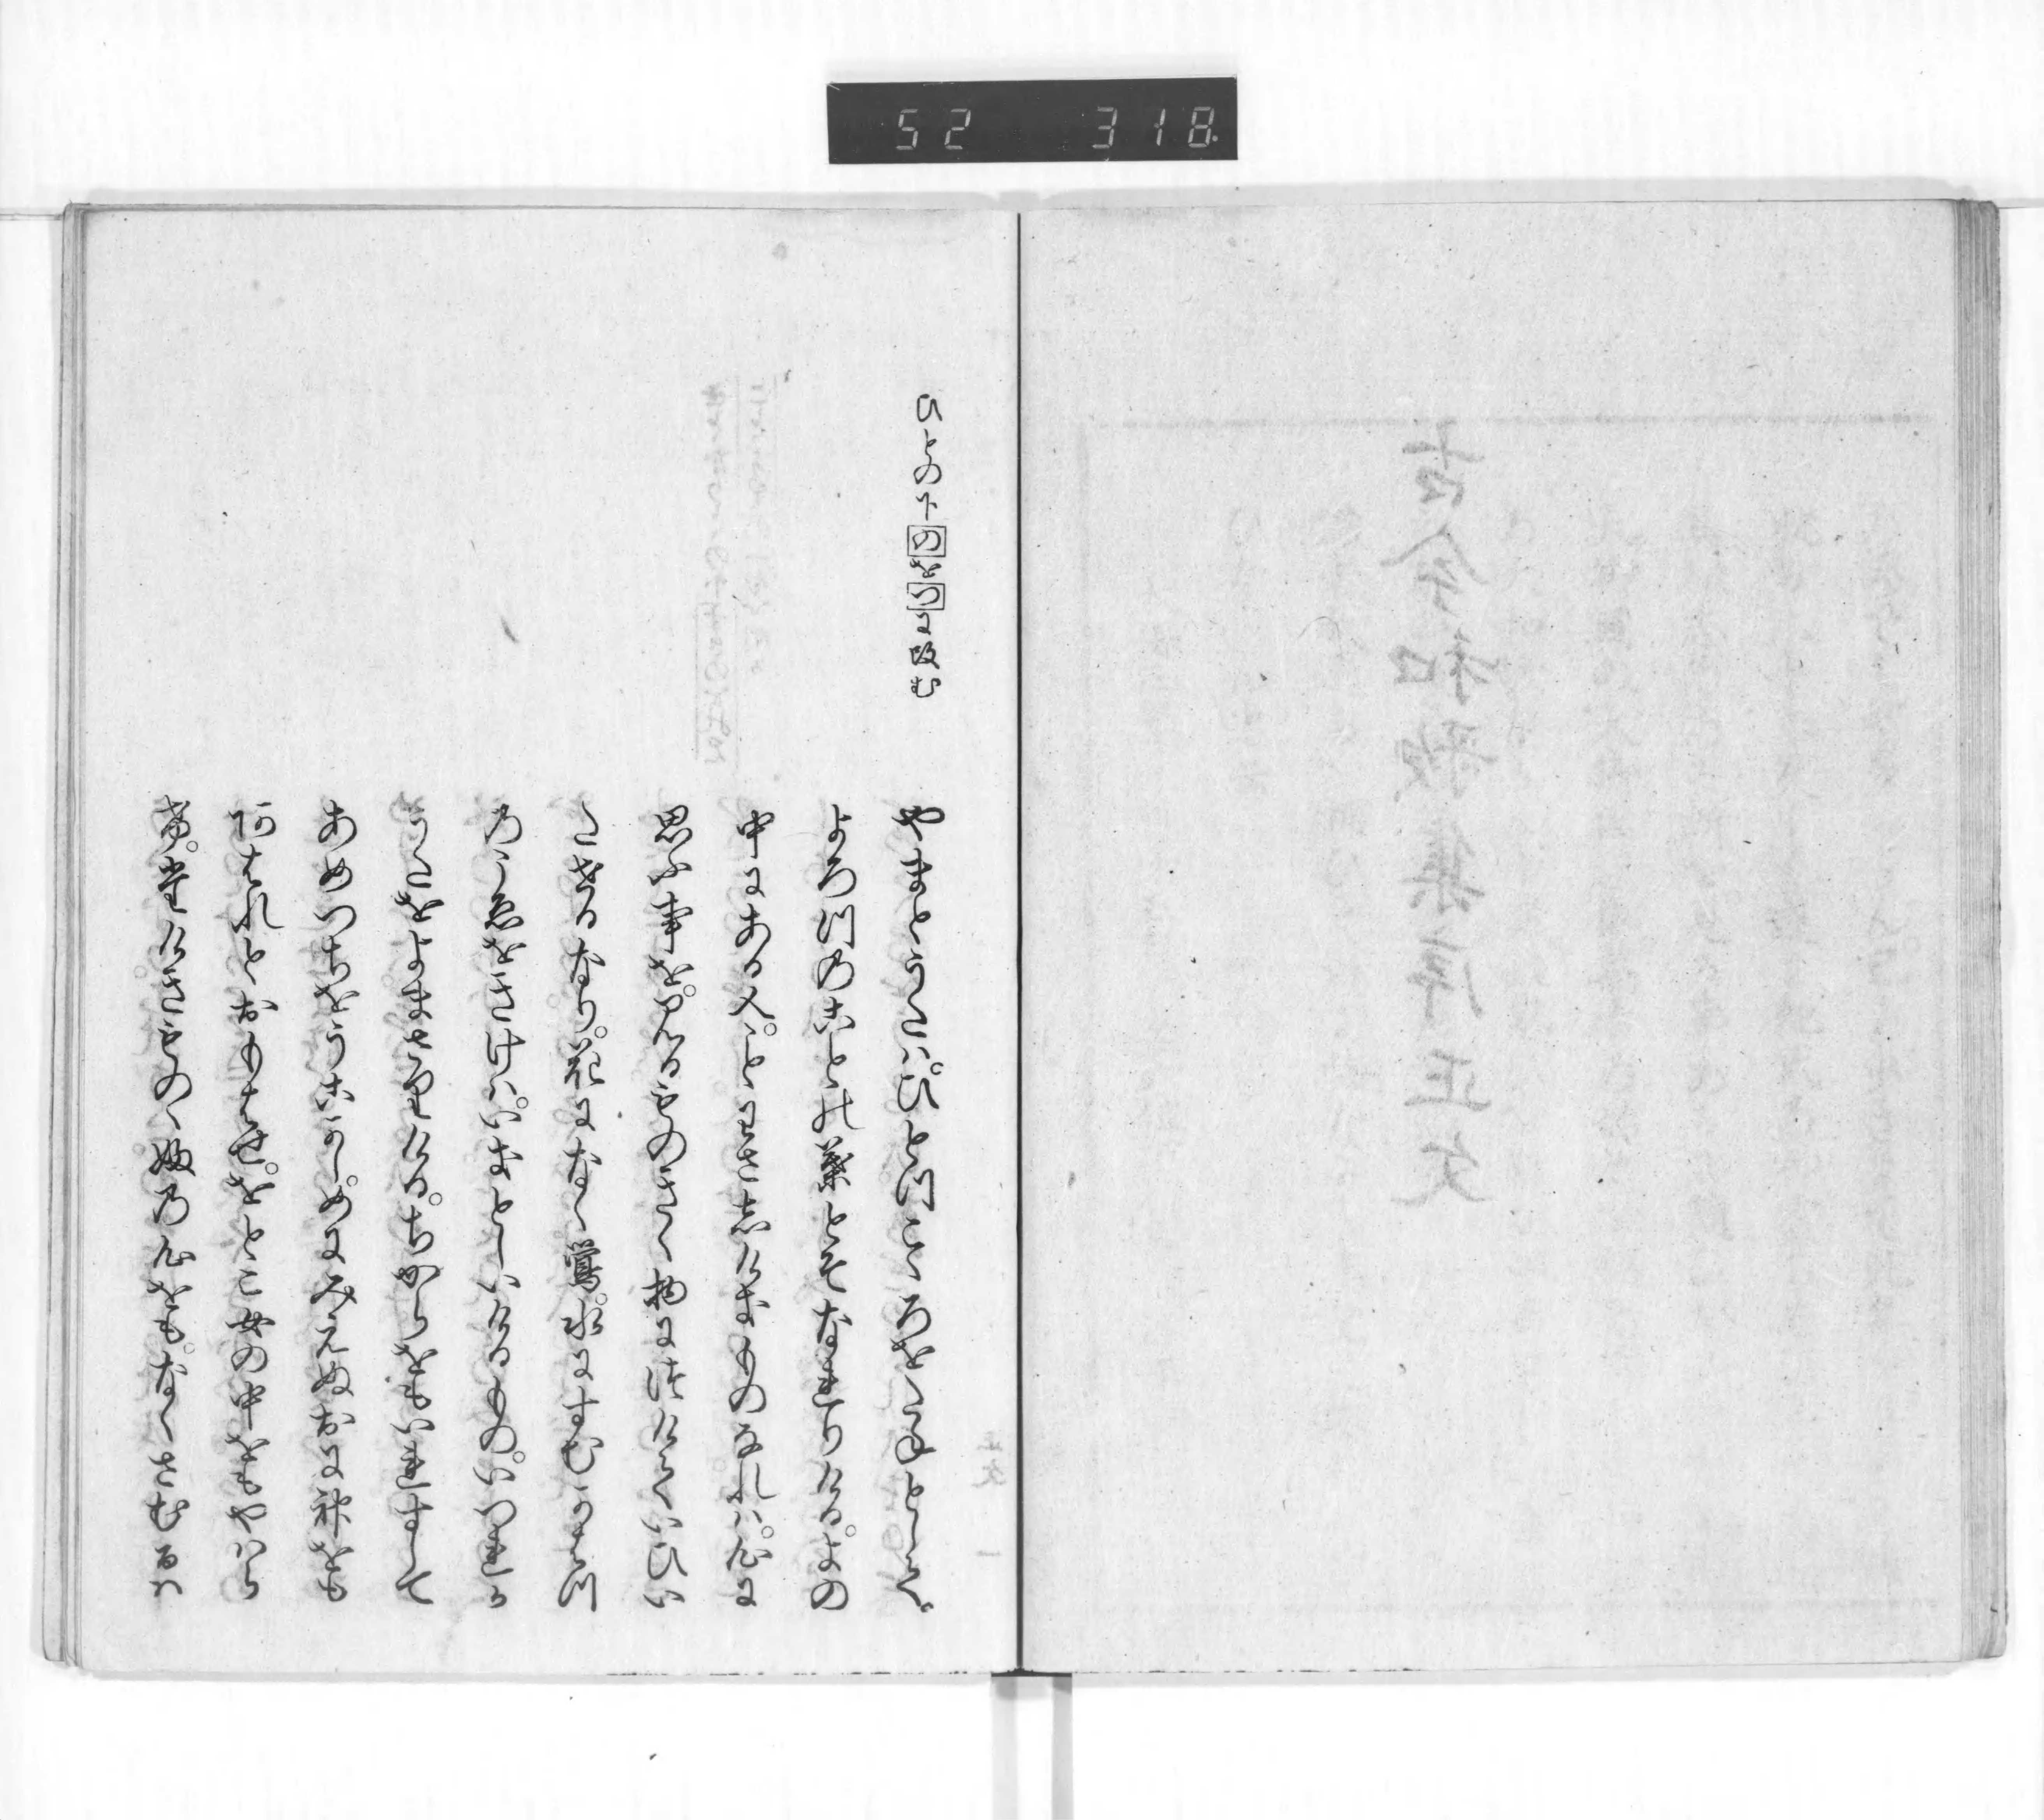 古今和歌集序正文
ひとの下のをつに改む
やまとうたは。ひとつこゝろをたねとして。
よろつのことの葉とそなれりける。よの
中にある人。ことわさしけきものなれは。心に
思ふ事を。みるものきく物につけていひい
たせるなり。花になく鶯。水にすむかはつ
のこゑをきけは。いきとしいけるもの。いつれか
うたをよまさりける。ちからをもいれすして
あめつちをうこかし。めにみえぬおに神をも
阿はれとおもはせ。をとこ女の中をもやはら
け。たけきものゝふの心をも。なくさむるは
52 318